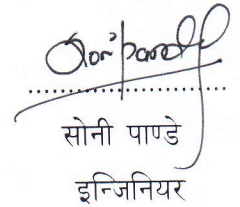 सोनी पाण्डे
इन्जिनियर